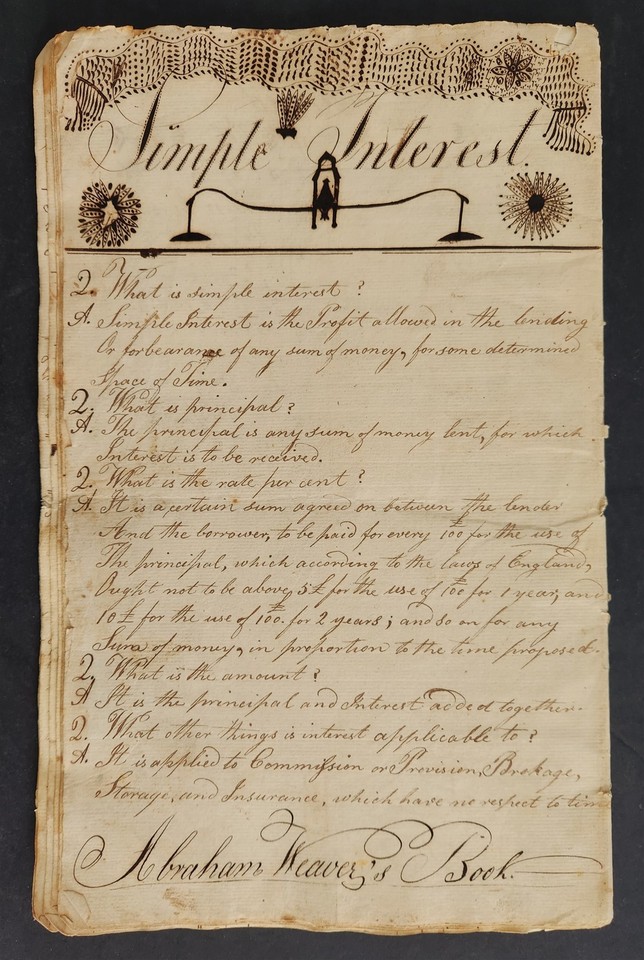 Simple Interest.
Q. What is simple interest ?
A. Simple Interest is the Profit allowed in the lending
Or forbearance of any sum of money, for some determined
Space of Time.
Q. What is principal ?
A. The principal is any sum of money lent, for which
Interest is to be received.
Q. What is the rate per cent ?
A. It is a certain sum agreed on between the lender
And the borrower, to be paid for every 100£ for the use of
The principal, which according to the laws of England,
Ought not to be above 5£ for the use of 100£ for 1 year, and
10£ for the use of 100£ for 2 years ; and so on for any
Sum of money, in proportion to the time proposed.
Q. What is the amount ?
A It is the principal and Interest added together.
Q. What other things is interest applicable to ?
A. It is applied to Commission or Provision, Brokage,
Storage, and Insurance, which have no respect to time
Abraham Weaver,s Book.